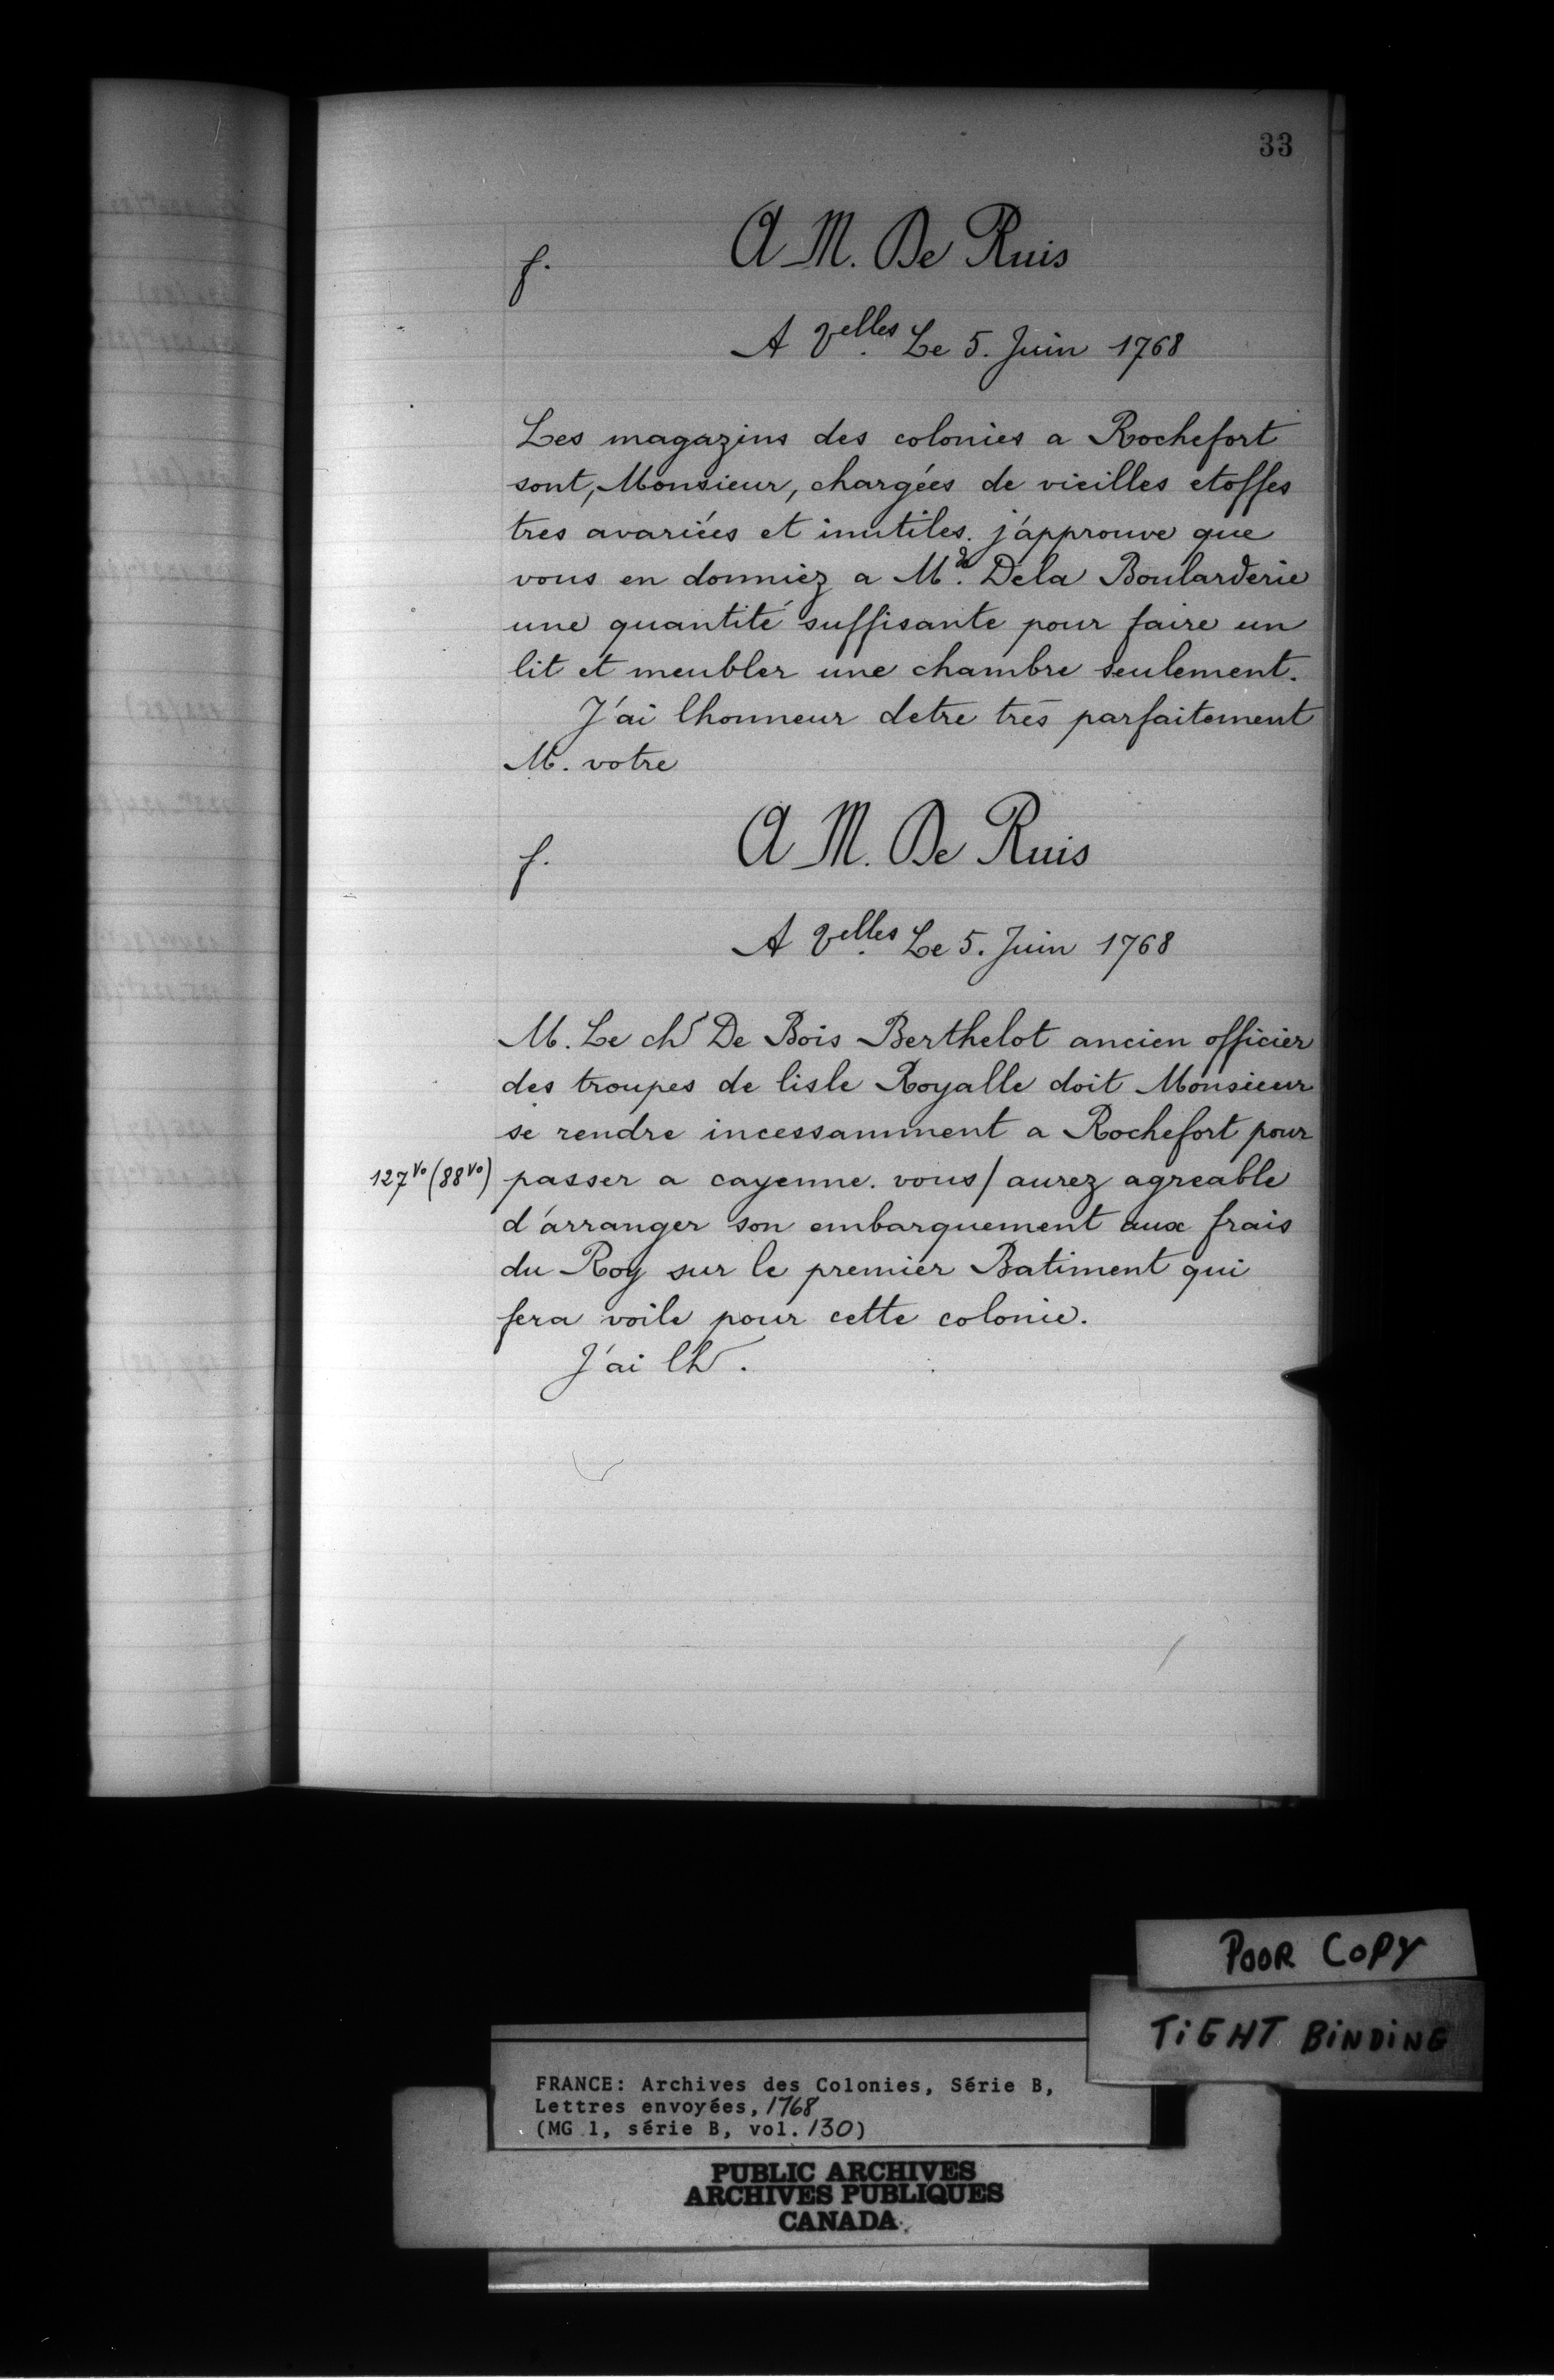 33
A M. De Ruis
f.
A Velles Le 5. Juin 1768
Les magazins des colonies a Rochefort
sont, Monsieur, chargées de vieilles etoffes
tres avariées et inutiles. j'approuve que
vous en donniez a Me. Dela Boularderie
une quantité suffisante pour faire un
lit et meubler une chambre seulement.
J'ai lhonneur detre très parfaitement
M. votre
A M. De Ruis
f.
A Velles Le 5. Juin 1768
M. Le chr De Bois Berthelot ancien officier
des troupes de lisle Royalle doit Monsieur
se rendre incessamment a Rochefort pour
127vo (88vo) passer a cayenne. vous/ aurez agreable
d'arranger son embarquement aux frais
du Roy sur le premier Batiment qui
fera voile pour cette colonie.
J'ai lhr.
POOR COPY
TIGHT BINDING
FRANCE: Archives des Colonies, Série B,
Lettres envoyées, 1768
(MG 1, série B, vol. 130)
PUBLIC ARCHIVES
ARCHIVES PUBLIQUES
CANADA